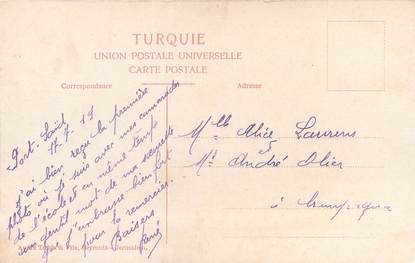 TURQUIE
UNION POSTALE UNIVERSELLE
CARTE POSTALE
Correspondance
Adresse
Port-Saïd
17.7.19
J'ai bien reçu la première
photo où je suis avec mes camarades
de l'école et en même temps
un gentil mot de ma
que j'embrasse bien fort
pour la remercier.
Baisers
René
Mlle Alice Laurens
et
Mr André Olier
à
& Fils, Beyrouth-Damas